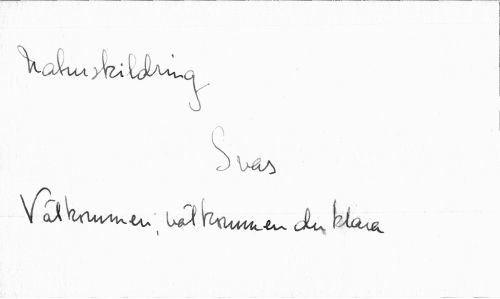 Naturskildring
Svas
Välkommen, välkommen du klara